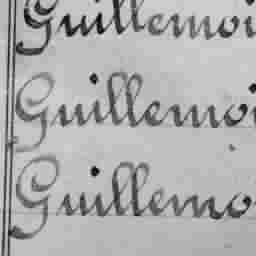 Guillemoi
Guillemoi
Guillemo